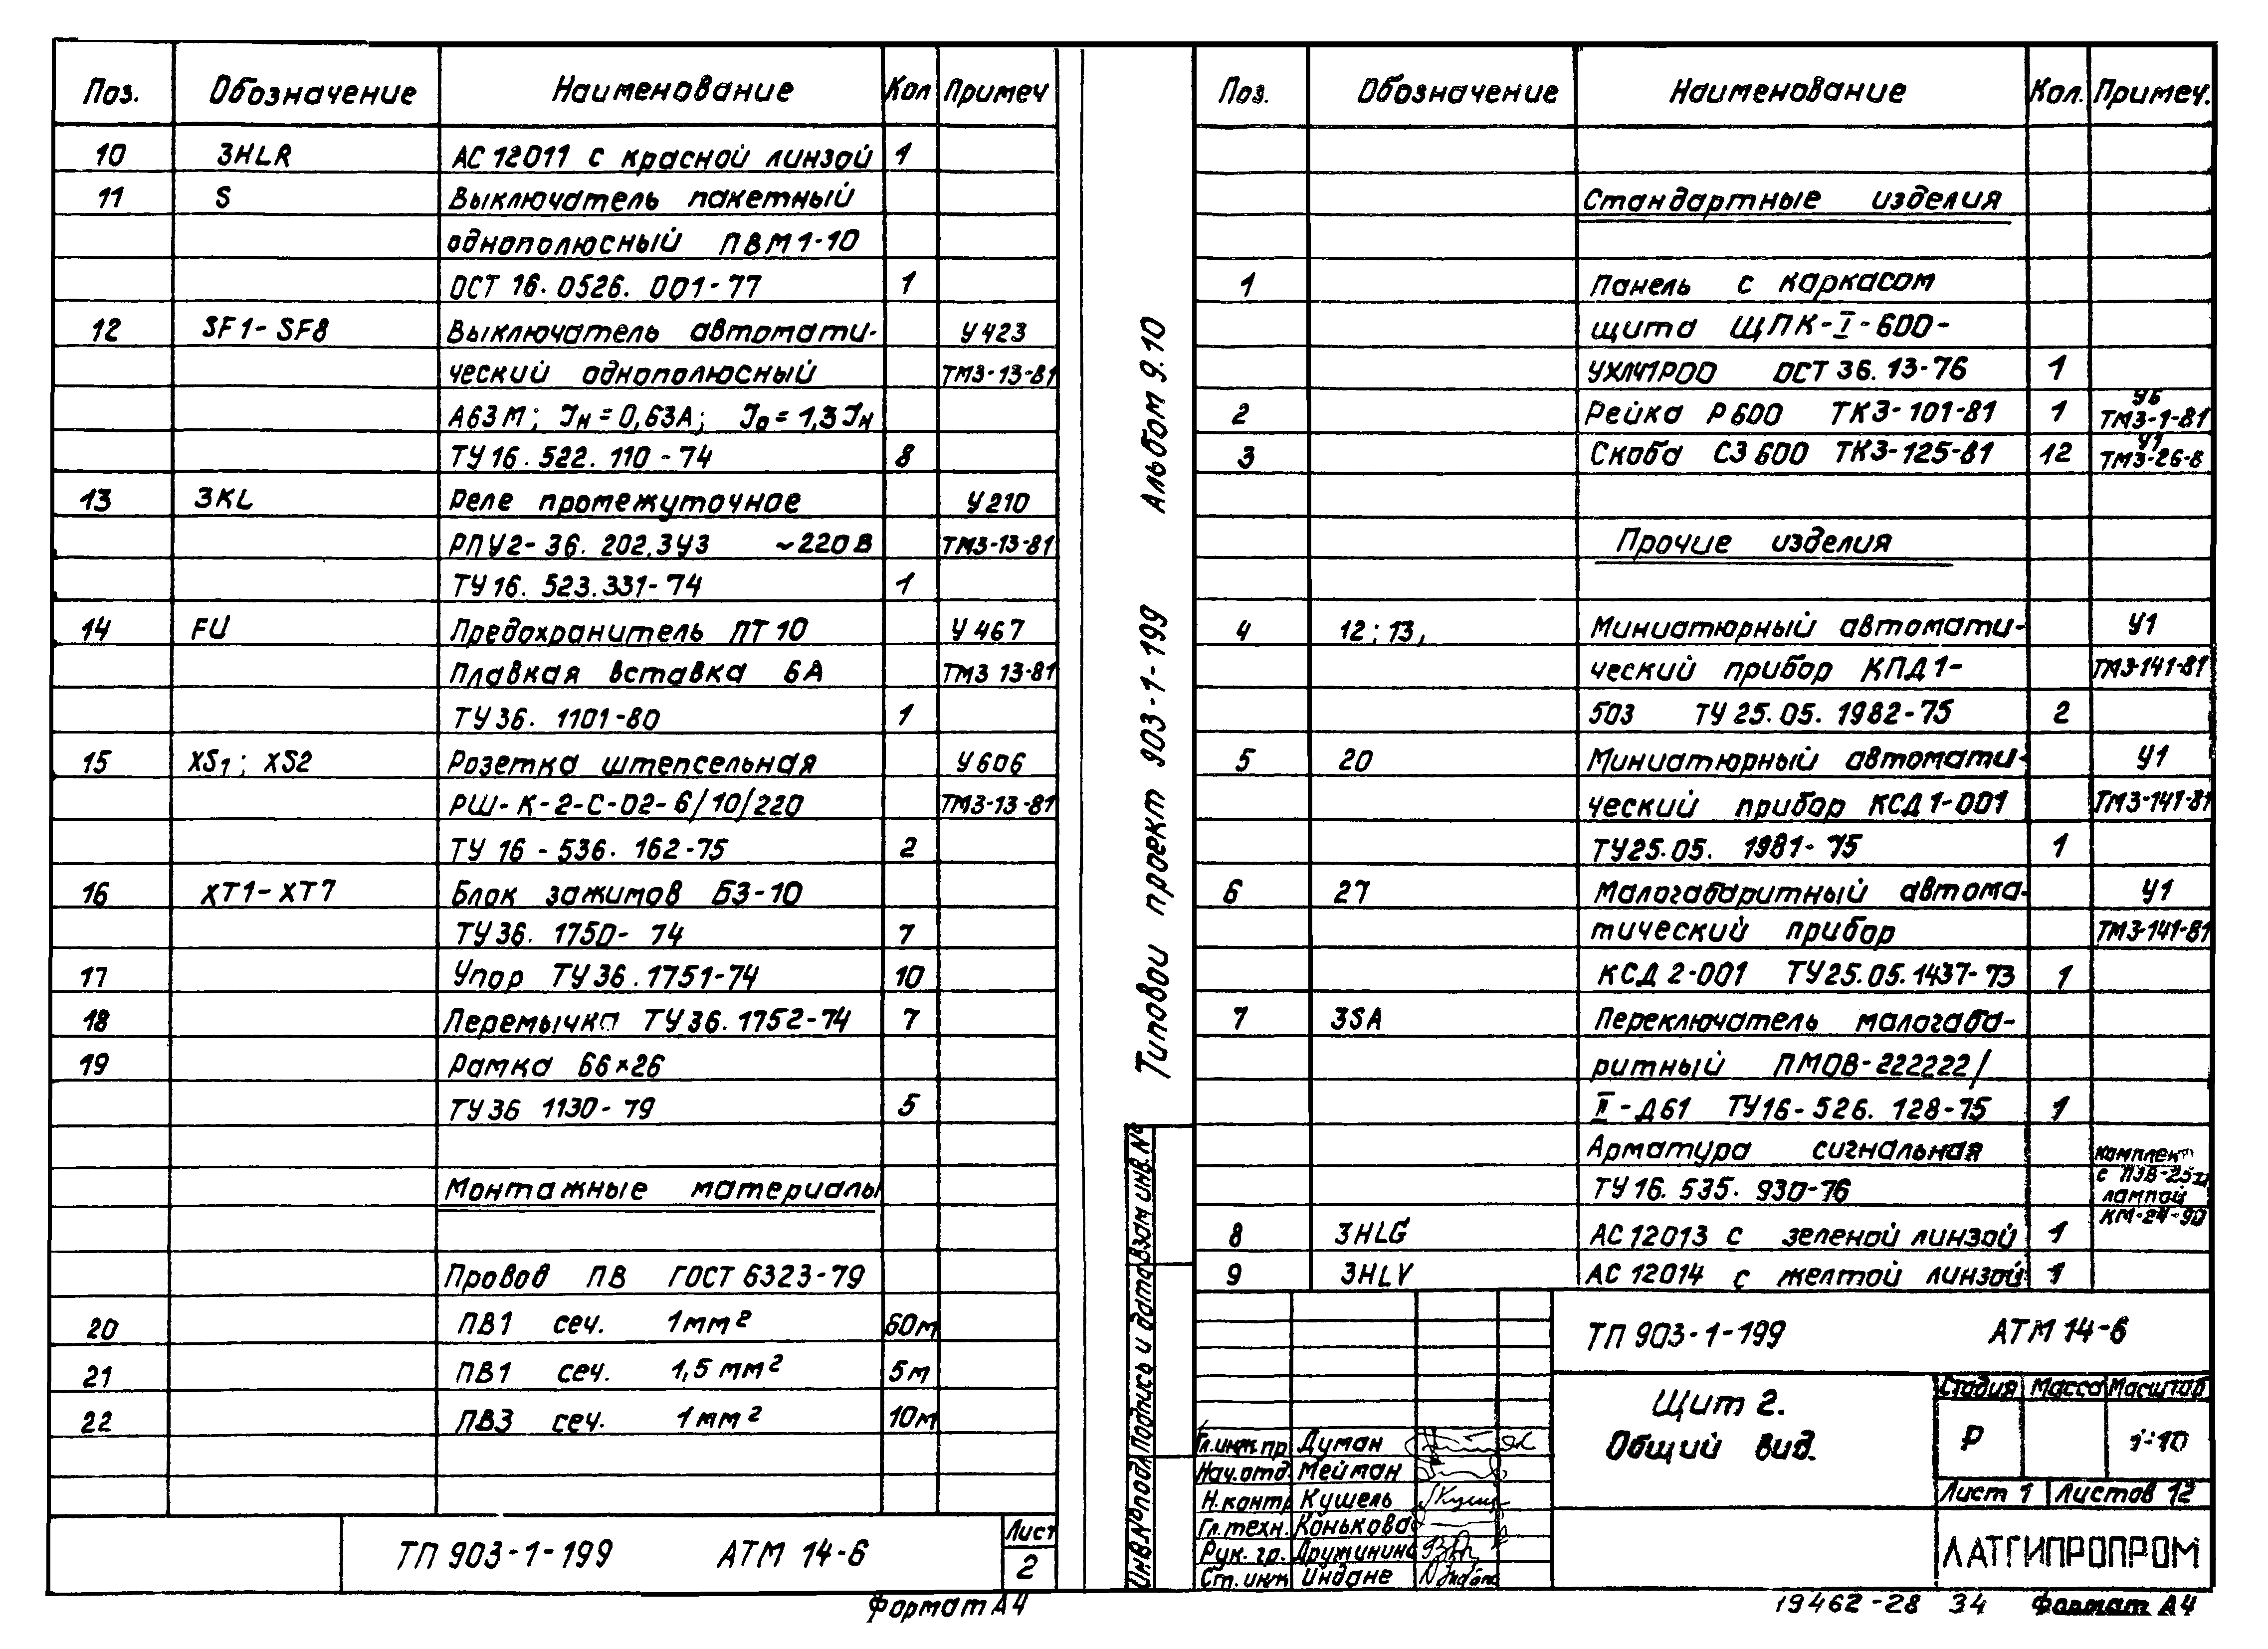 Поз. Обозначение Наименование Кол Примеч
10 3HLR АС 12011 с красной линзой 1
11 S Выключатель пакетный
однополюсный ПВМ1-10
ОСТ 16. 0526. 001-77 1
12 SF1-SF8 Выключатель автомати- У423
ческий однополюсный ТМ3-13-81
А63М; Iн=0,63А; Iо=1,3Iн
ТУ16.522.110-74 8
13 3KL Реле промежуточное У210
РПУ2-36.202.3У3 ~220В ТМ3-13-81
ТУ16. 523.331-74 1
14 FU Предохранитель ПТ10 У467
Плавкая вставка 6А ТМ3 13-81
ТУ36. 1101-80 1
15 XS1; XS2 Розетка штепсельная У606
РШ-К-2-С-02-6/10/220 ТМ3-13-81
ТУ 16-536.162-75 2
16 XT1-XT7 Блок зажимов БЗ-10
ТУ36. 1750-74 7
17 Упор ТУ36.1751-74 10
18 Перемычка ТУ36.1752-74 7
19 Рамка 66×26
ТУ36 1130-79 5
Монтажные материалы
Провод ПВ ГОСТ 6323-79
20 ПВ1 сеч. 1мм² 60м
21 ПВ1 сеч. 1,5мм² 5м
22 ПВ3 сеч. 1мм² 10м
ТП 903-1-199 АТМ 14-6 Лист
2
Формат А4
Типовой проект 903-1-199 Альбом 9.10
Инв.№подл. Подпись и дата Взам инв.№
Поз. Обозначение Наименование Кол. Примеч.
Стандартные изделия
1 Панель с каркасом
щита ЩПК-I-600-
УХЛ41Р00 ОСТ 36.13-76 1
2 Рейка Р600 ТК3-101-81 1 У6 ТМ3-1-81
3 Скоба С3600 ТК3-125-81 12 У1 ТМ3-26-8
Прочие изделия
4 12; 13, Миниатюрный автомати- У1
ческий прибор КПД1- ТМ3-141-81
503 ТУ25.05.1982-75 2
5 20 Миниатюрный автомати- У1
ческий прибор КСД1-001 ТМ3-141-81
ТУ25.05. 1981-75 1
6 27 Малогабаритный автома- У1
тический прибор ТМ3-141-81
КСД2-001 ТУ25.05.1437-73 1
7 3SA Переключатель малогаба-
ритный ПМОВ-222222/
II-Д61 ТУ16-526.128-75 1
Арматура сигнальная комплект
ТУ16.535.930-76 с ПЭВ-25 лампой
КМ-24-90
8 3HLG АС12013 с зеленой линзой 1
9 3HLV АС 12014 с желтой линзой 1
ТП 903-1-199 АТМ 14-6
Щит 2.
Общий вид.
Стадия Масса Масштаб
Р 1:10
Лист 1 Листов 12
ЛАТГИПРОПРОМ
Гл.инж.пр. Думан
Нач.отд. Мейман
Н.контр Кушель
Гл.техн. Конькова
Рук. гр. Дружинина
Ст.инж Индане
19462-28 34 Формат А4